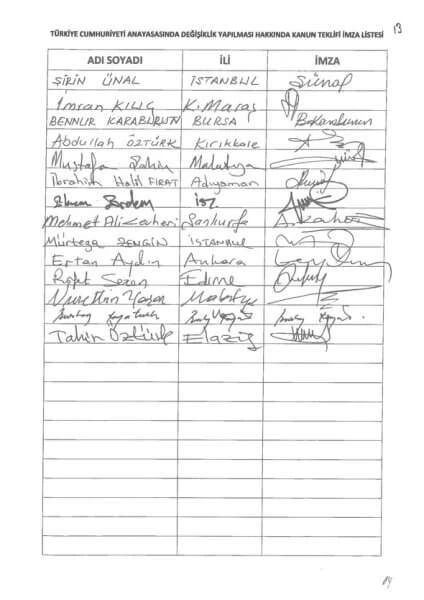 13
TÜRKİYE CUMHURİYETİ ANAYASASINDA DEĞİŞİKLİK YAPILMASI HAKKINDA KANUN TEKLİFİ İMZA LİSTESİ
ADI SOYADI İLİ İMZA
ŞİRİN ÜNAL İSTANBUL Sünal
İmran KILIÇ K.Maraş
BENNUR KARABURUN BURSA BKaraburun
Abdullah ÖZTÜRK Kırıkkale
Mustafa Şahin Malatya
İbrahim Halil FIRAT Adıyaman
Ekrem Erdem İST.
Mehmet Ali Cevheri Şanlıurfa
Mürteza ZENGİN İSTANBUL
Ertan Aydın Ankara
Rafet Sezen Edirne
Nurettin Yaşar Malatya
Tahir Öztürk Elazığ
14